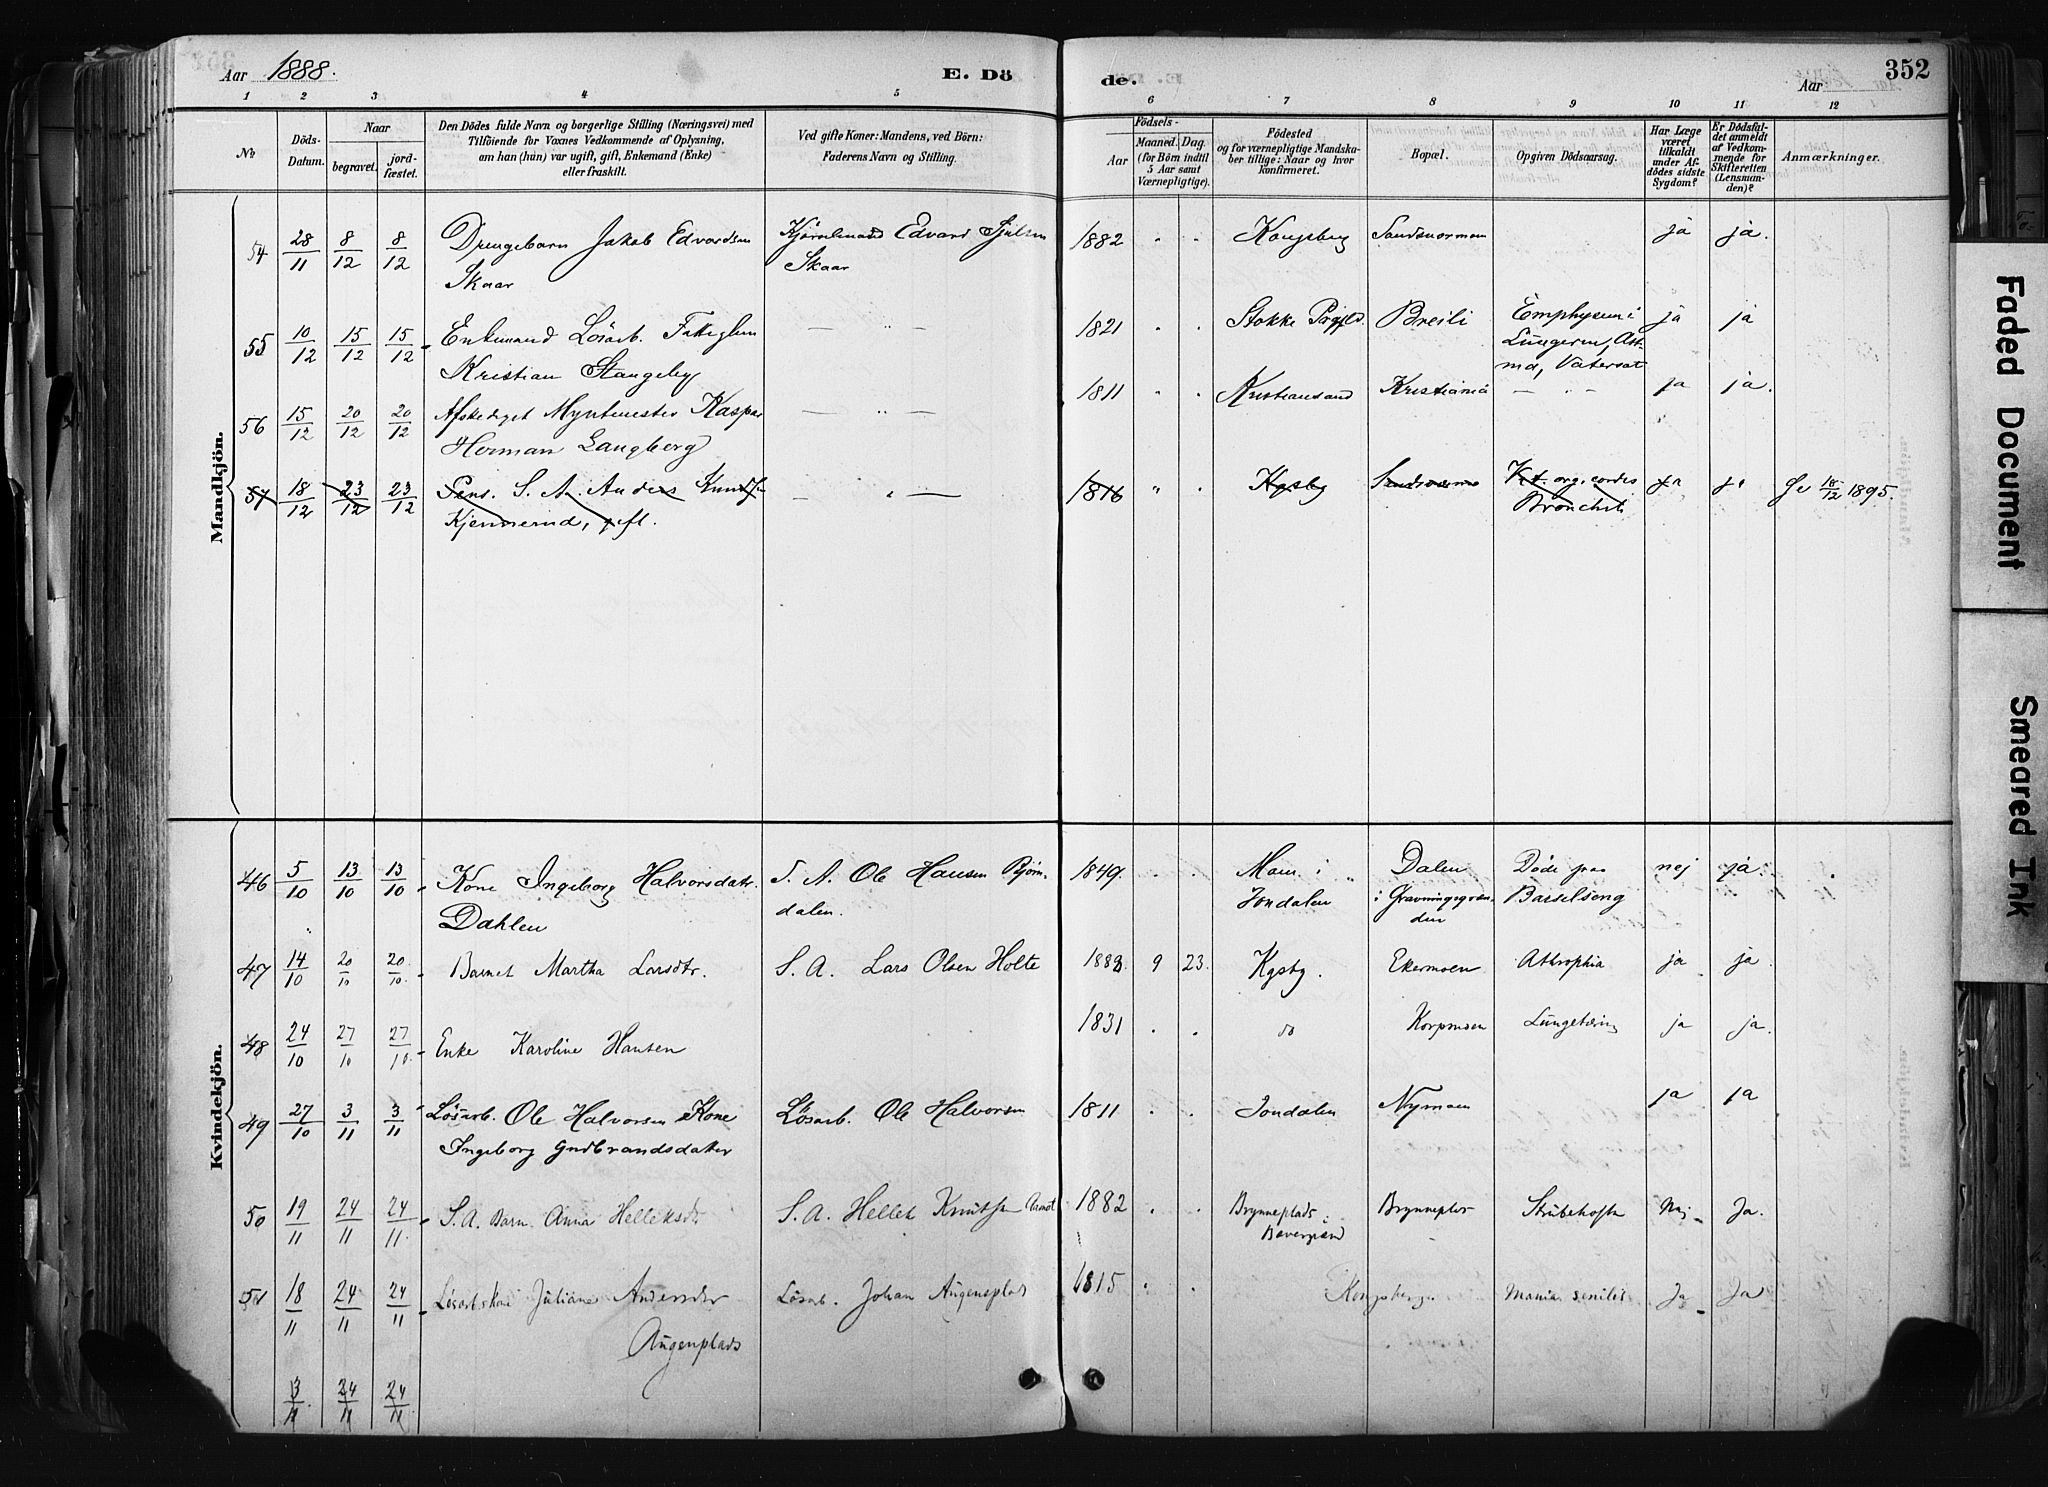 Aar 1888.
E. Dö
de.
Aar
352
1 2 3 4 5 6 7 8 9 10 11 12
No
Döds-
Datum.
Naar
begravet.
jord-
fæstet.
Den Dödes fulde Navn og borgerlige Stilling (Næringsvei) med
Tilföiende for Voxnes Vedkommende af Oplysning,
om han (hun) var ugift, gift, Enkemand (Enke)
eller fraskilt.
Ved gifte Koner: Mandens, ved Börn:
Faderens Navn og Stilling.
Födsels-
Aar
Maaned. Dag.
(for Börn indtil
5 Aar samt
Værnepligtige).
Födested
og for værnepligtige Mandska-
ber tillige: Naar og hvor
konfirmeret.
Bopæl.
Opgiven Dödsaarsag.
Har Læge
været
tilkaldt
under Af-
dödes sidste
Sygdom?
Er Dödsfal-
det anmeldt
af Vedkom-
mende for
Skifteretten
(Lensman-
den)?
Anmærkninger.
Mandkjön.
54 28/11 8/12 8/12 Drengebarn Jakob Edvardsen Edvard 1882 " " Kongsberg ja ja.
Skaar Skaar
55 10/12 15/12 15/12 Enkemand Lösarb. — " — 1821 " " Stokke Breili Emphysem i ja ja
Kristian Stangeby Lungerne, Ast-
ma, Vatersot
56 15/12 20/12 20/12 Afskediget Myntmester Kaspar — " — 1811 " " Kristiansand Kristiania — " — ja ja.
Herman Langberg
57 18/12 23/12 23/12 Pens. S. A. Anders — " — 1816 " " Kgsbg org. cordis ja ja 18/12 1895.
Kjennerud, gift. Bronchit
Kvindekjön.
46 5/10 13/10 13/10 Kone Ingeborg Halvorsdatr. S. A. Ole Hansen Björn- 1849. " " i Dalen Döde paa nej ja.
Dahlen dalen. Jondalen i Barselseng
47 14/10 20/10 20/10 Barnet Martha Larsdtr. S. A. Lars Olsen Holte 1888. 9 23. Kgsbg. Ekermoen Athrophia ja ja.
48 24/10 27/10 27/10 Enke Karoline Hansen 1831 . . do ja ja.
49 27/10 3/11 3/11 Lösarb. Ole Halvorsen Kone Lösarb. Ole Halvorsen 1811 . . Jondalen Nymoen ja ja
Ingeborg Gudbrandsdater
50 19/11 24/11 24/11 S. A. Barn Anna Helleksdr S. A. Hellek 1882 . . Brynneplads i Strubehoste Nej Ja.
51 18/11 24/11 24/11 Juliane Lösarb. Johan 1815 . . Kongsberg. Mania senilis Ja Ja
Augenplads
3/11 24/11 24/11
Faded Document
Smeared Ink